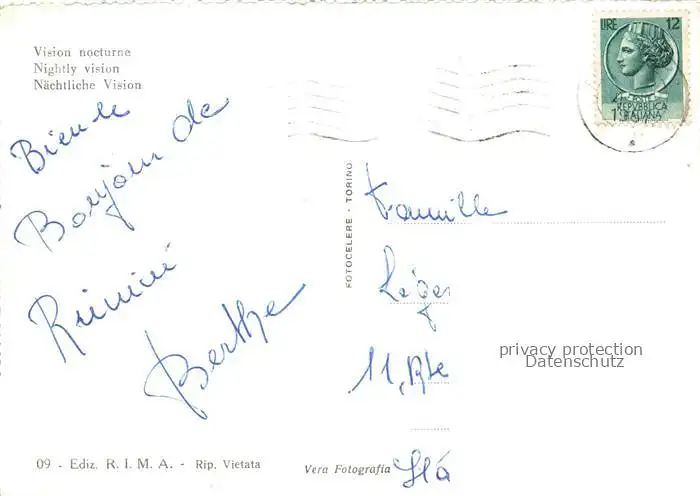 Vision nocturne
Nightly vision
Nächtliche Vision
Bien le
Bonjour de
Rimini
Berthe
09 - Ediz. R. I. M. A. - Rip. Vietata
FOTOCELERE - TORINO
LIRE 12
REPVBBLICA
ITALIANA
Famille
Léger
11, Rte
privacy protection
Datenschutz
Vera Fotografia